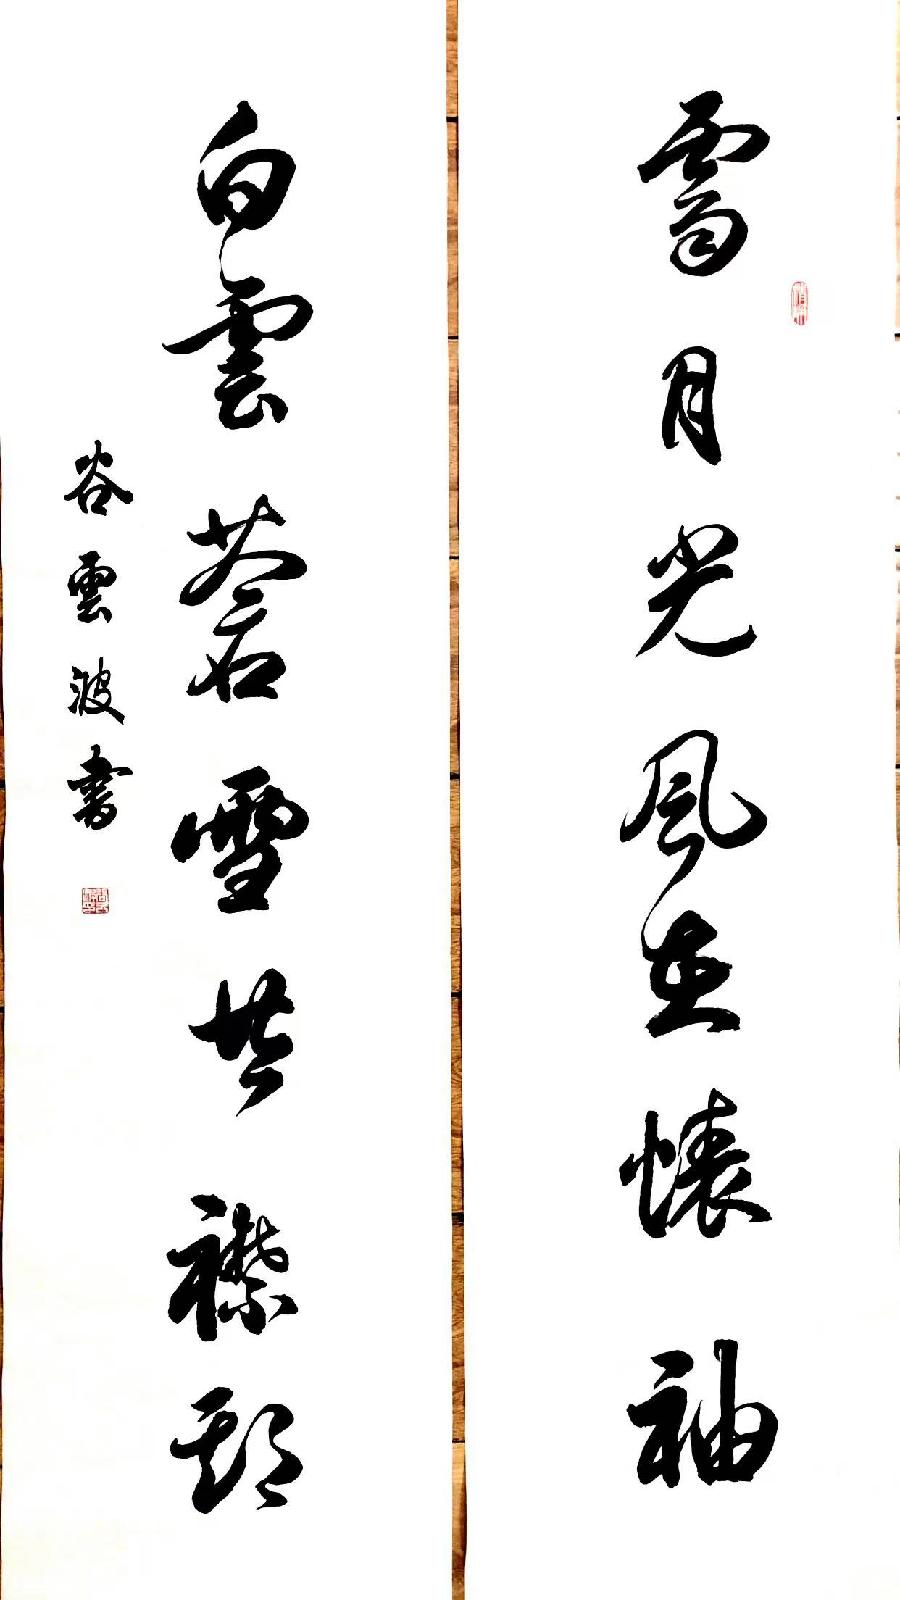 霽月光風在懷袖
白雲蒼雪共襟期
谷雲波書